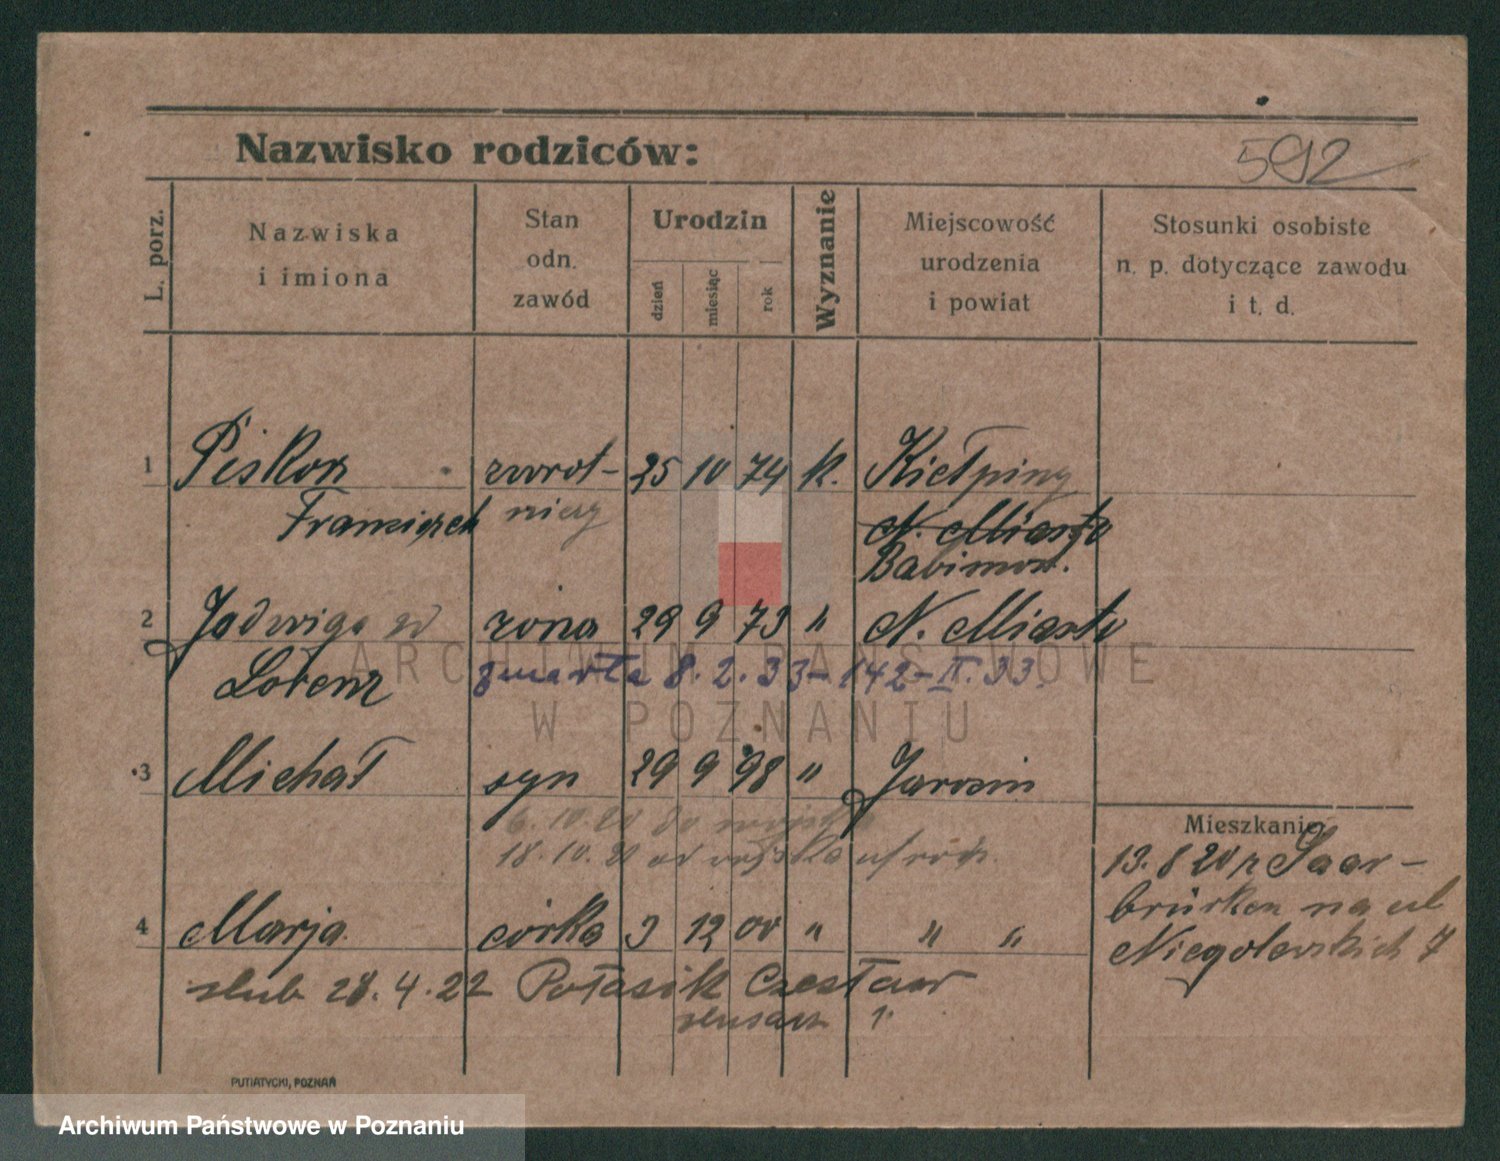 592
Nazwisko rodziców:
L. porz.
Nazwiska
i imiona
Stan
odn.
zawód
Urodzin
dzień
miesiąc
rok
Wyznanie
Miejscowość
urodzenia
i powiat
Stosunki osobiste
n. p. dotyczące zawodu
i t. d.
1 Piskorz zwrot- 25 10 74 k. Kiełpiny
Franciszek niczy N. Miasto
Babimow.
2 Jadwiga zd żona 29 9 73 " N. Miasto
Lorenz zmarła 8.2.33-142-II.33.
ARCHIWUM PAŃSTWOWE
W POZNANIU
3 Michał syn 29 9 98 " Jarocin
6.10.20 do wojska
18.10.20 od wojska
Mieszkanie
13.8 20 z Saar-
brücken na ul
Niegolewskich 7
4 Marja córka 3 12 00 " " "
ślub 28.4.22 Potasik Czesław
ślusarz
PUTIATYCKI, POZNAŃ
Archiwum Państwowe w Poznaniu